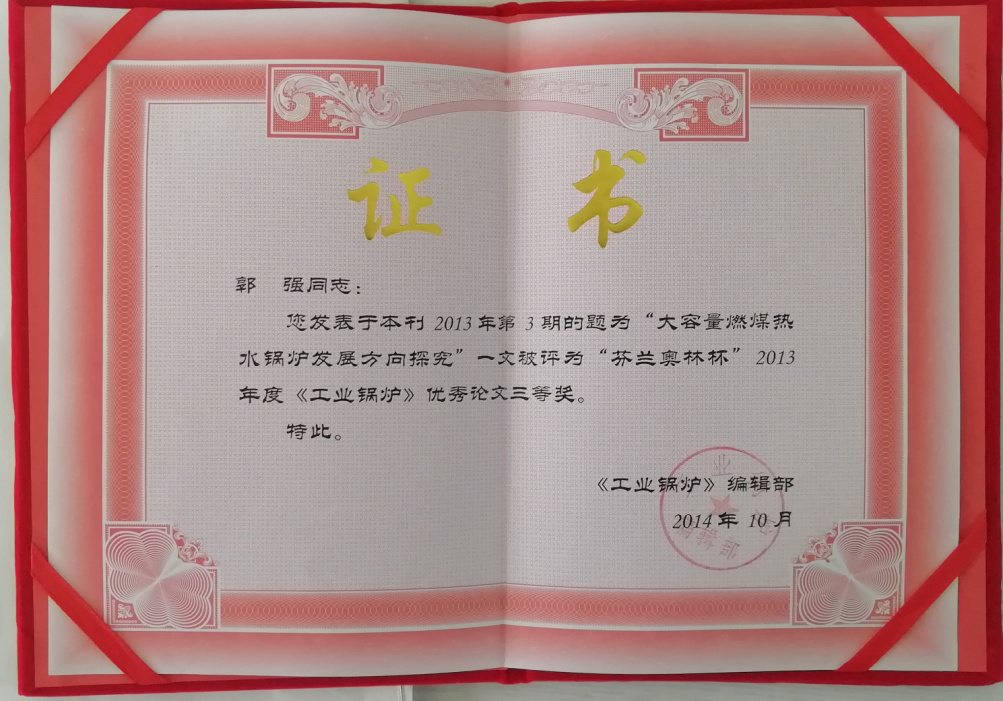 证 书
郭 强同志：
您发表于本刊 2013 年第 3 期的题为“大容量燃煤热
水锅炉发展方向探究”一文被评为“芬兰奥林杯” 2013
年度《工业锅炉》优秀论文三等奖。
特此。
《工业锅炉》编辑部
2014 年 10 月
业
编辑部